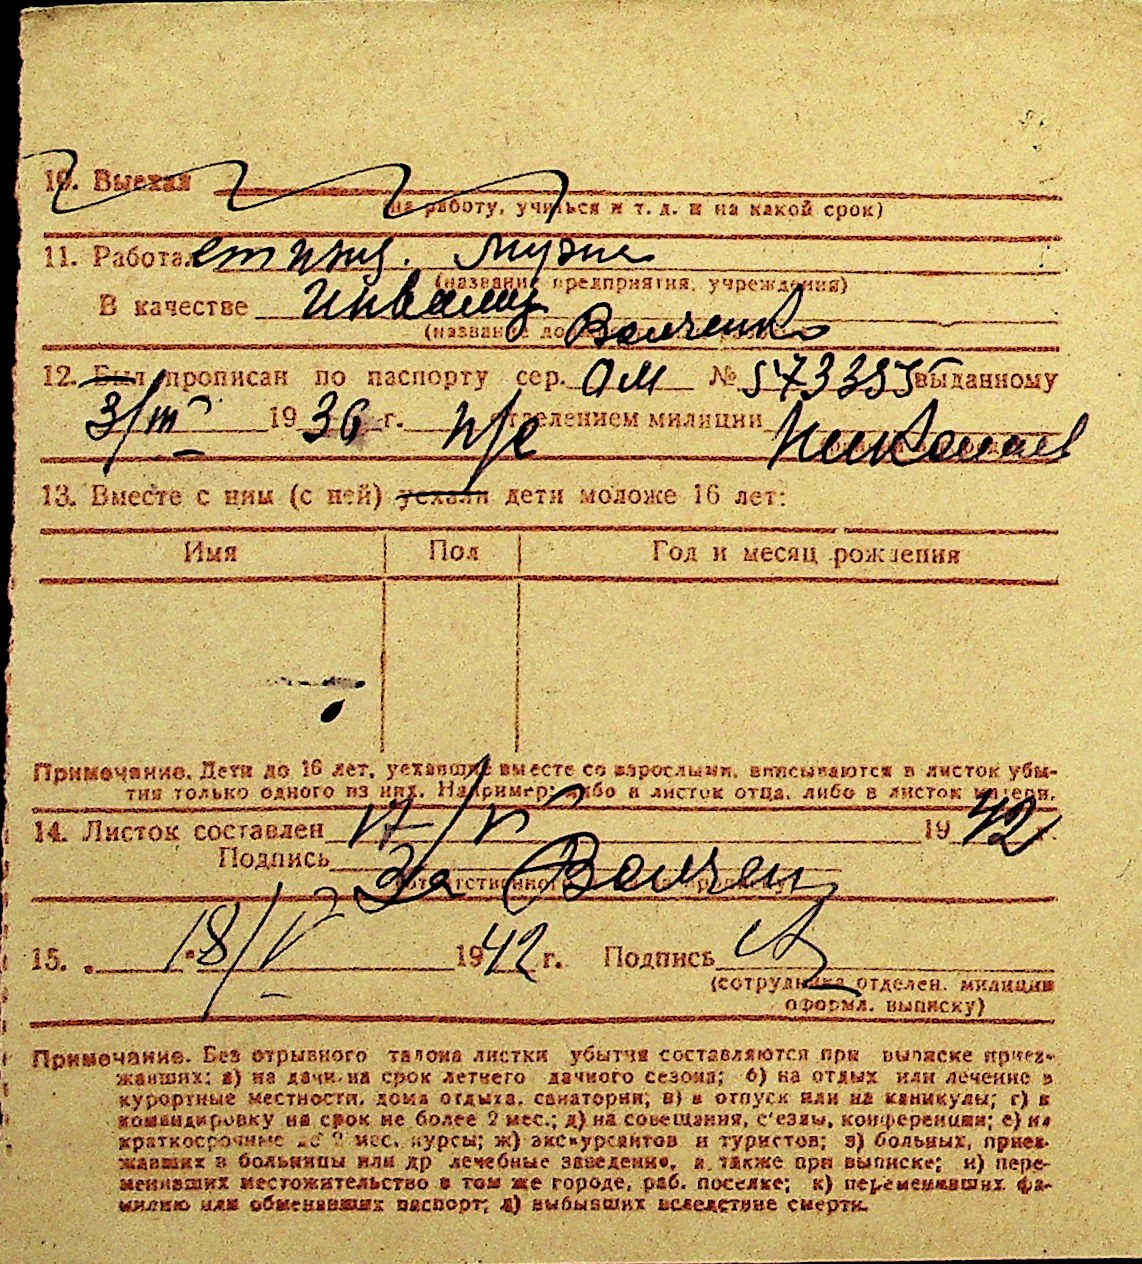 10. Выехал
(на работу, учиться и т. д. и на какой срок)
11. Работа. ет ижд. мужа
(название предприятия, учреждения)
В качестве
(название до
Волченко
12. Был прописан по паспорту сер. ОМ № 573355 выданному
3/III 1936 г. н/с отделением милиции
13. Вместе с ним (с ней) уехали дети моложе 16 лет:
Имя Пол Год и месяц рождения
Примечание. Дети до 16 лет, уехавшие вместе со взрослыми, вписываются в листок убы-
тия только одного из них. Например: либо в листок отца, либо в листок матери.
14. Листок составлен 17/V 1942
Подпись За Волчен
15. 18/V 1942 г. Подпись
(сотрудника отделен. милиции
оформл. выписку)
Примечание. Без отрывного талона листки убытия составляются при выписке приез-
жавших: а) на дачи на срок летнего дачного сезона; б) на отдых или лечение в
курортные местности, дома отдыха, санатории; в) в отпуск или на каникулы; г) в
командировку на срок не более 2 мес.; д) на совещания, с'езды, конференции; е) на
краткосрочные до 2 мес. курсы; ж) экскурсантов и туристов; з) больных, приез-
жавших в больницы или др лечебные заведения, а также при выписке; и) пере-
менивших местожительство в том же городе, раб. поселке; к) переменивших фа-
милию или обменявших паспорт; л) выбывших вследствие смерти.